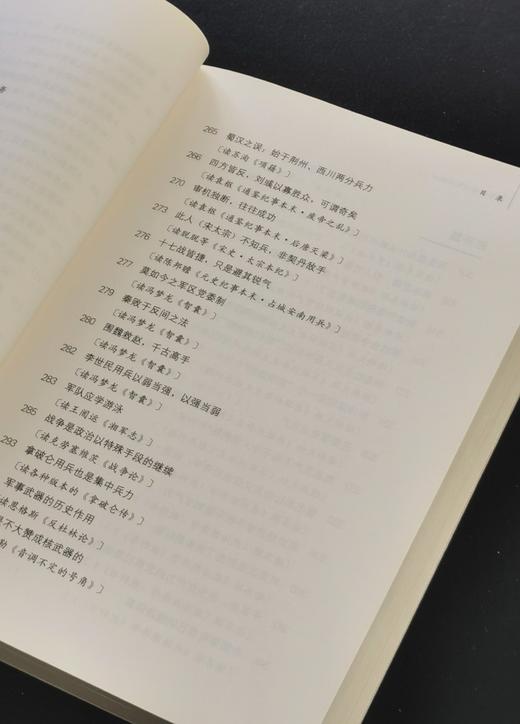 目 录
265 蜀汉之误：始于荆州、西川两分兵力
［读苏洵《项籍》］
266 四方皆反，刘彧以寡胜众，可谓奇矣
［读袁枢《通鉴纪事本末·废帝之乱》］
270 审机独断，往往成功
［读袁枢《通鉴纪事本末·后唐灭梁》］
273 此人（宋太宗）不知兵，非契丹敌手
［读脱脱等《宋史·太宗本纪》］
276 十七战皆捷，只是避其锐气
［读陈邦瞻《元史纪事本末·占城安南用兵》］
277 莫如今之军区党委制
［读冯梦龙《智囊》］
279 秦败于反间之法
［读冯梦龙《智囊》］
280 围魏救赵，千古高手
［读冯梦龙《智囊》］
282 李世民用兵以弱当强，以强当弱
［读冯梦龙《智囊》］
283 军队应学游泳
［读王闿运《湘军志》］
285 战争是政治以特殊手段的继续
［读克劳塞维茨《战争论》］
293 拿破仑用兵也是集中兵力
［读各种版本的《拿破仑传》］
军事武器的历史作用
读恩格斯《反杜林论》］
不大赞成核武器的
勒《音调不定的号角》］